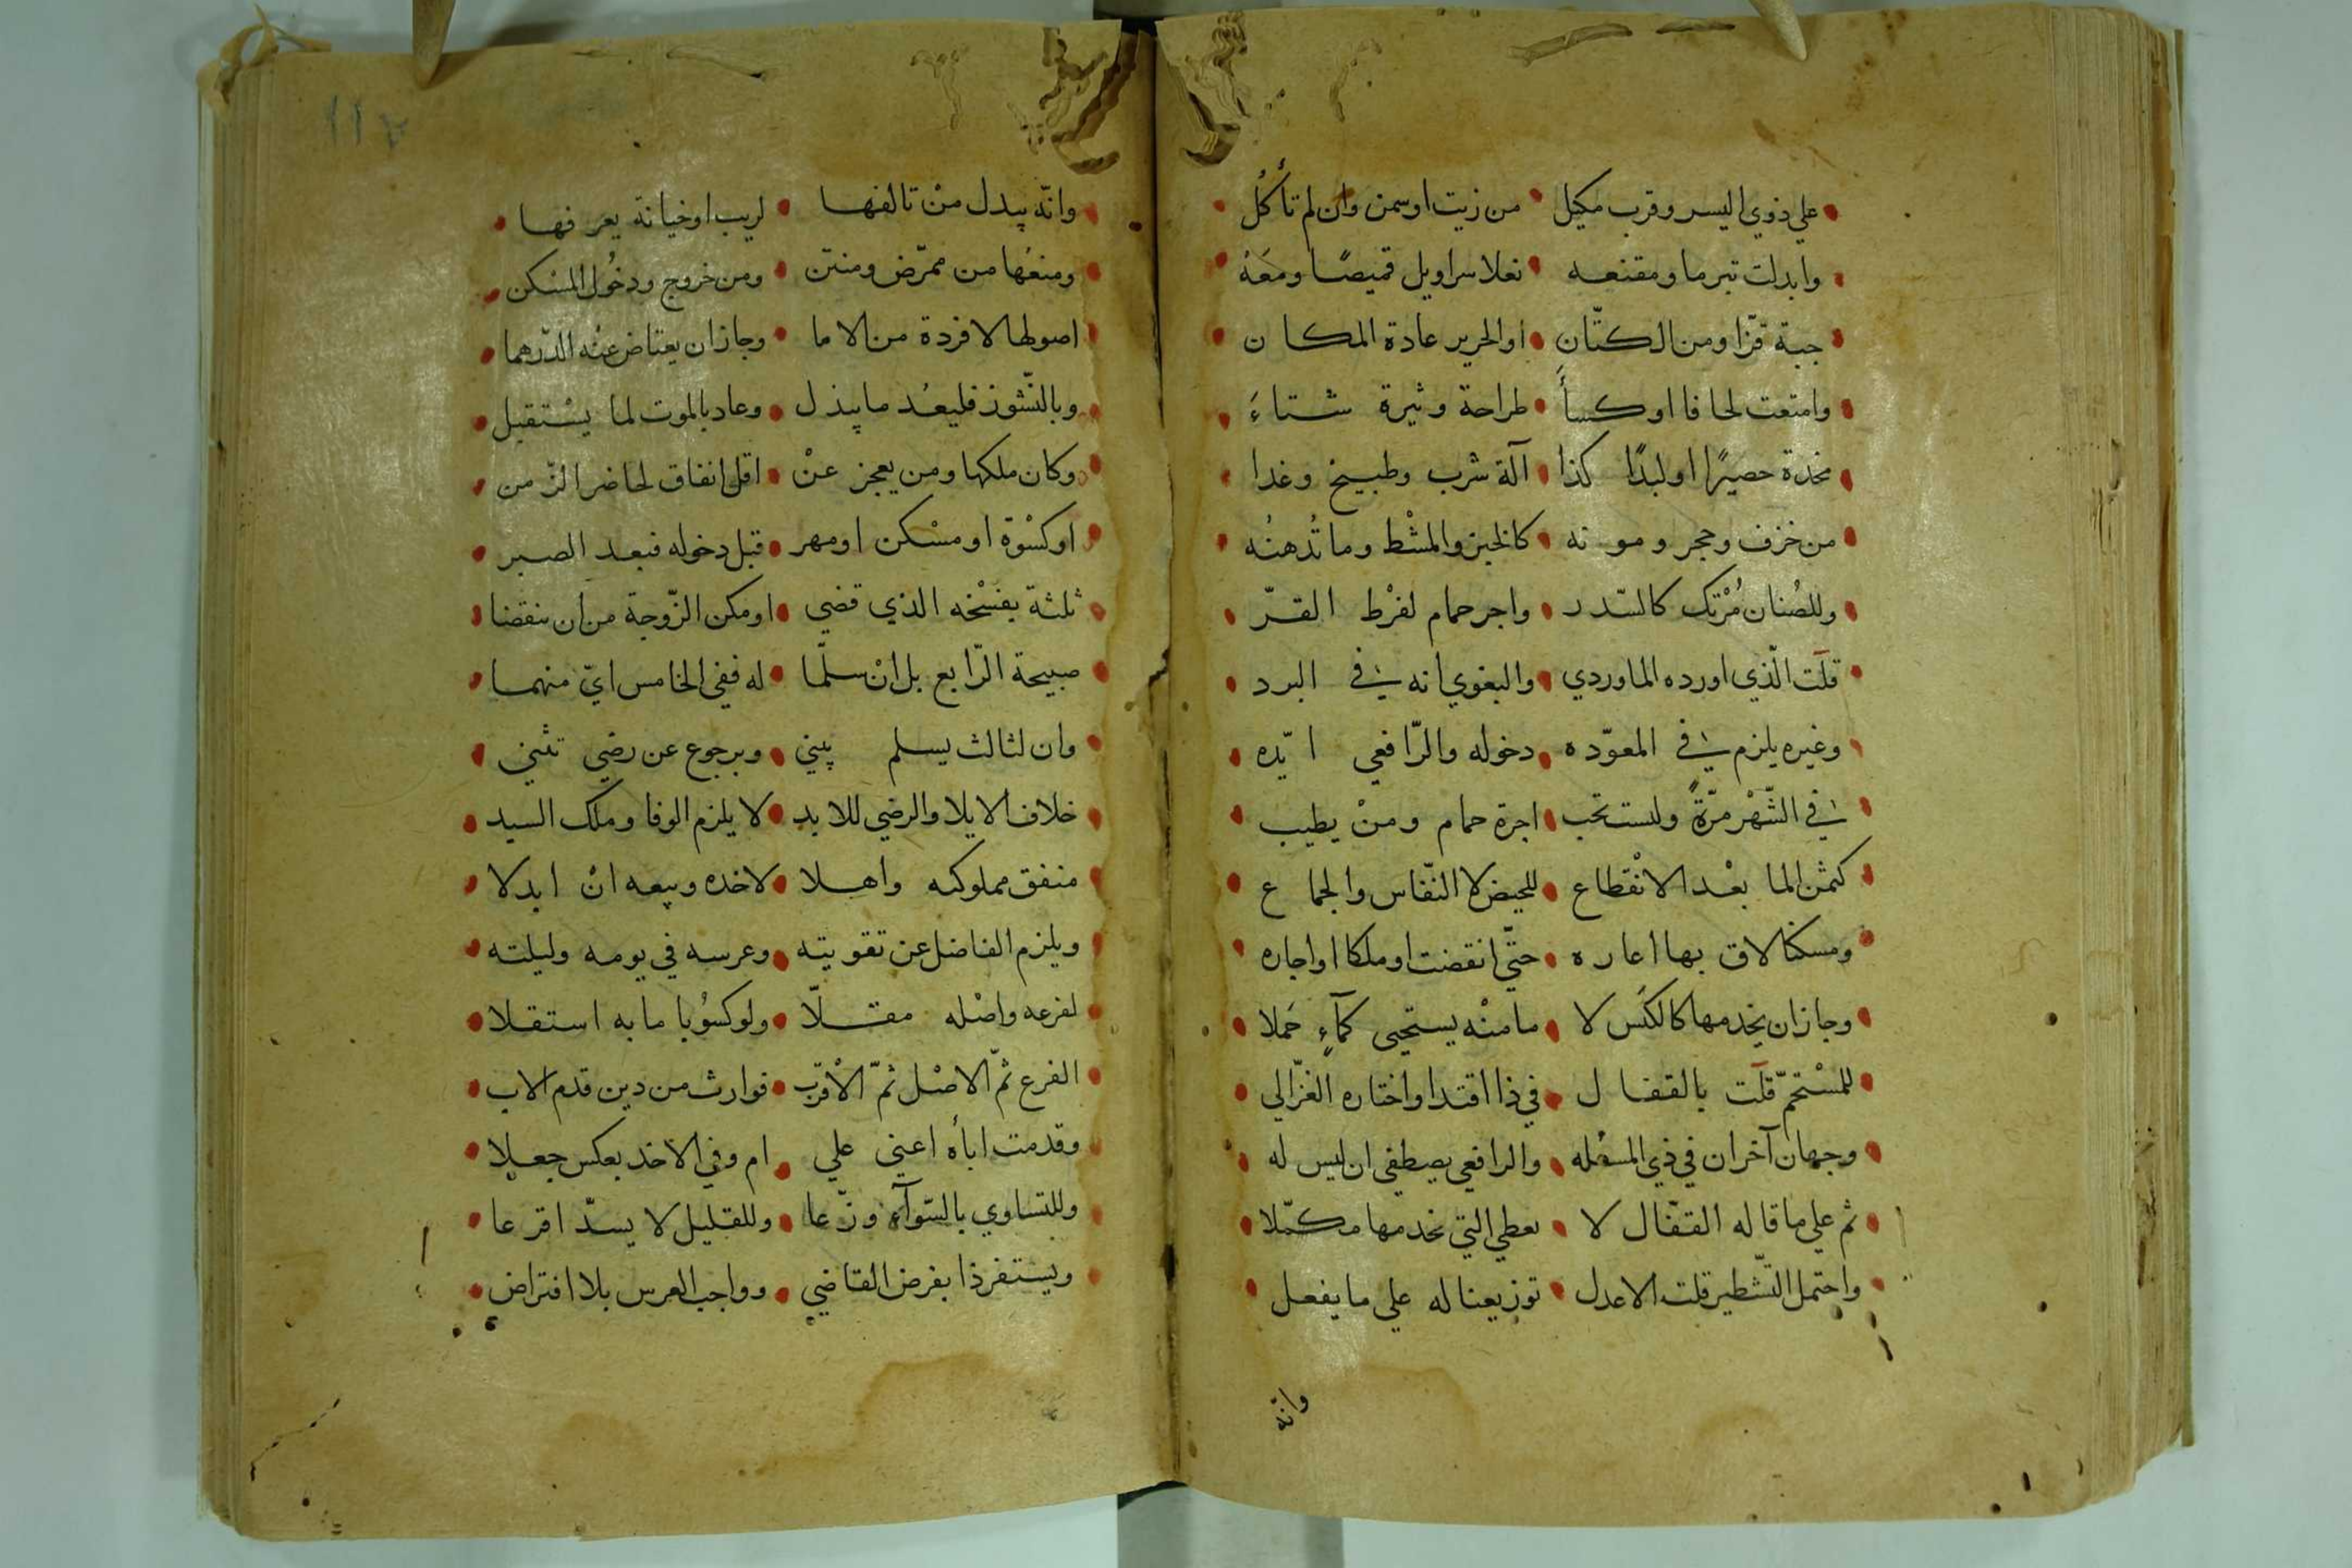 علي ذوي اليسر وقرب مكيل من زيت اوسمن وان لم تأكل
وابدلت تبرما ومقنعه نعلا سراويل قميصًا ومَعَهْ
جبة قزّا ومن الكتّانِ او الحرير عادة المكان
وامتعت لحافا اوكسأ طراحة وثيرة شتاءَ
مخدة حصيرًا اولبدًا كذا آلة شرب وطبيخ وغدا
من خزف وحجر ومونه كالخبز والمشْط وما تُدهنُه
وللصُنان مُرْتك كالسّدر واجر حمام لفرْط القرّ
قلت الّذي اورده الماوردي والبغوي انه في البرد
وغيره يلزم في المعوّده دخوله والرّافعي ايّده
في الشّهْر مرّةً ولست تحب اجرة حمام ومنْ يطيب
كمثن الما بعْد الانْقطاع للحيض لا النفّاس والجماع
ومسكنا لاق بها اعاره حتّى انقضت اوملكا اواجاره
وجازان يخدمها كالكنَس لا ما منْه يستحيى كمآءٍ حَملا
للمسْتحمّ قلت بالقفال في ذا اقتدا واختاره الغزّالي
وجهان آخران في ذي المسْله والرافعي يصطفي ان ليس له
ثم علي ما قاله القفّال لا يعطي التي تخدمها مكمّلا
واحتمل التّشطير قلت الاعدل توزيعنا له علي ما يفعل
وانّه
١١٢
وانّه يبدل منْ تالفها لريب اوخيانة يعرفها
ومنعُها من ممرّض ومنتن ومن خروج ودخُول المسْكن
اصولها لا فردة من الاما وجازان يعتاض عنْه الدّرهما
وبالنّشوز فليعُد ما يبذل وعاد بالموت لما يسْتقبل
وكان ملكها ومن يعجز عنْ اقل انفاق لحاضر الزّمن
اوكسْوة اومسْكن اومهر قبل دخوله فبعد الصبر
ثلثة يفسْخه الذي قضي اومكن الزّوجة من ان تنقضا
صبيحة الرّابع بل انْ سلّما له ففي الخامس ايّ منهما
وان لثالث يسلم يبني وبرجوع عن رضي تثني
خلاف الايلا والرضي للابد لا يلزم الوفا وملك السيد
منفق مملوكه واهلا لاخده وبيعه انْ ابدلا
ويلزم الفاضل عن تقويته وعرسه في يومه وليلته
لفرعه واصْله مقلّا ولوكسُوبا ما به استقلا
الفرع ثمّ الاصْل ثمّ الاْقرب فوارث من دين قدم الاب
وقدمت اباه اعني علي ام وفي الاخد بعكس جعلا
وللتساوي بالسّوآء وزّعا وللقليل لا يسدّ اقرعا
ويستفرذا بفرض القاضي وواجب العرس بلا افتراض